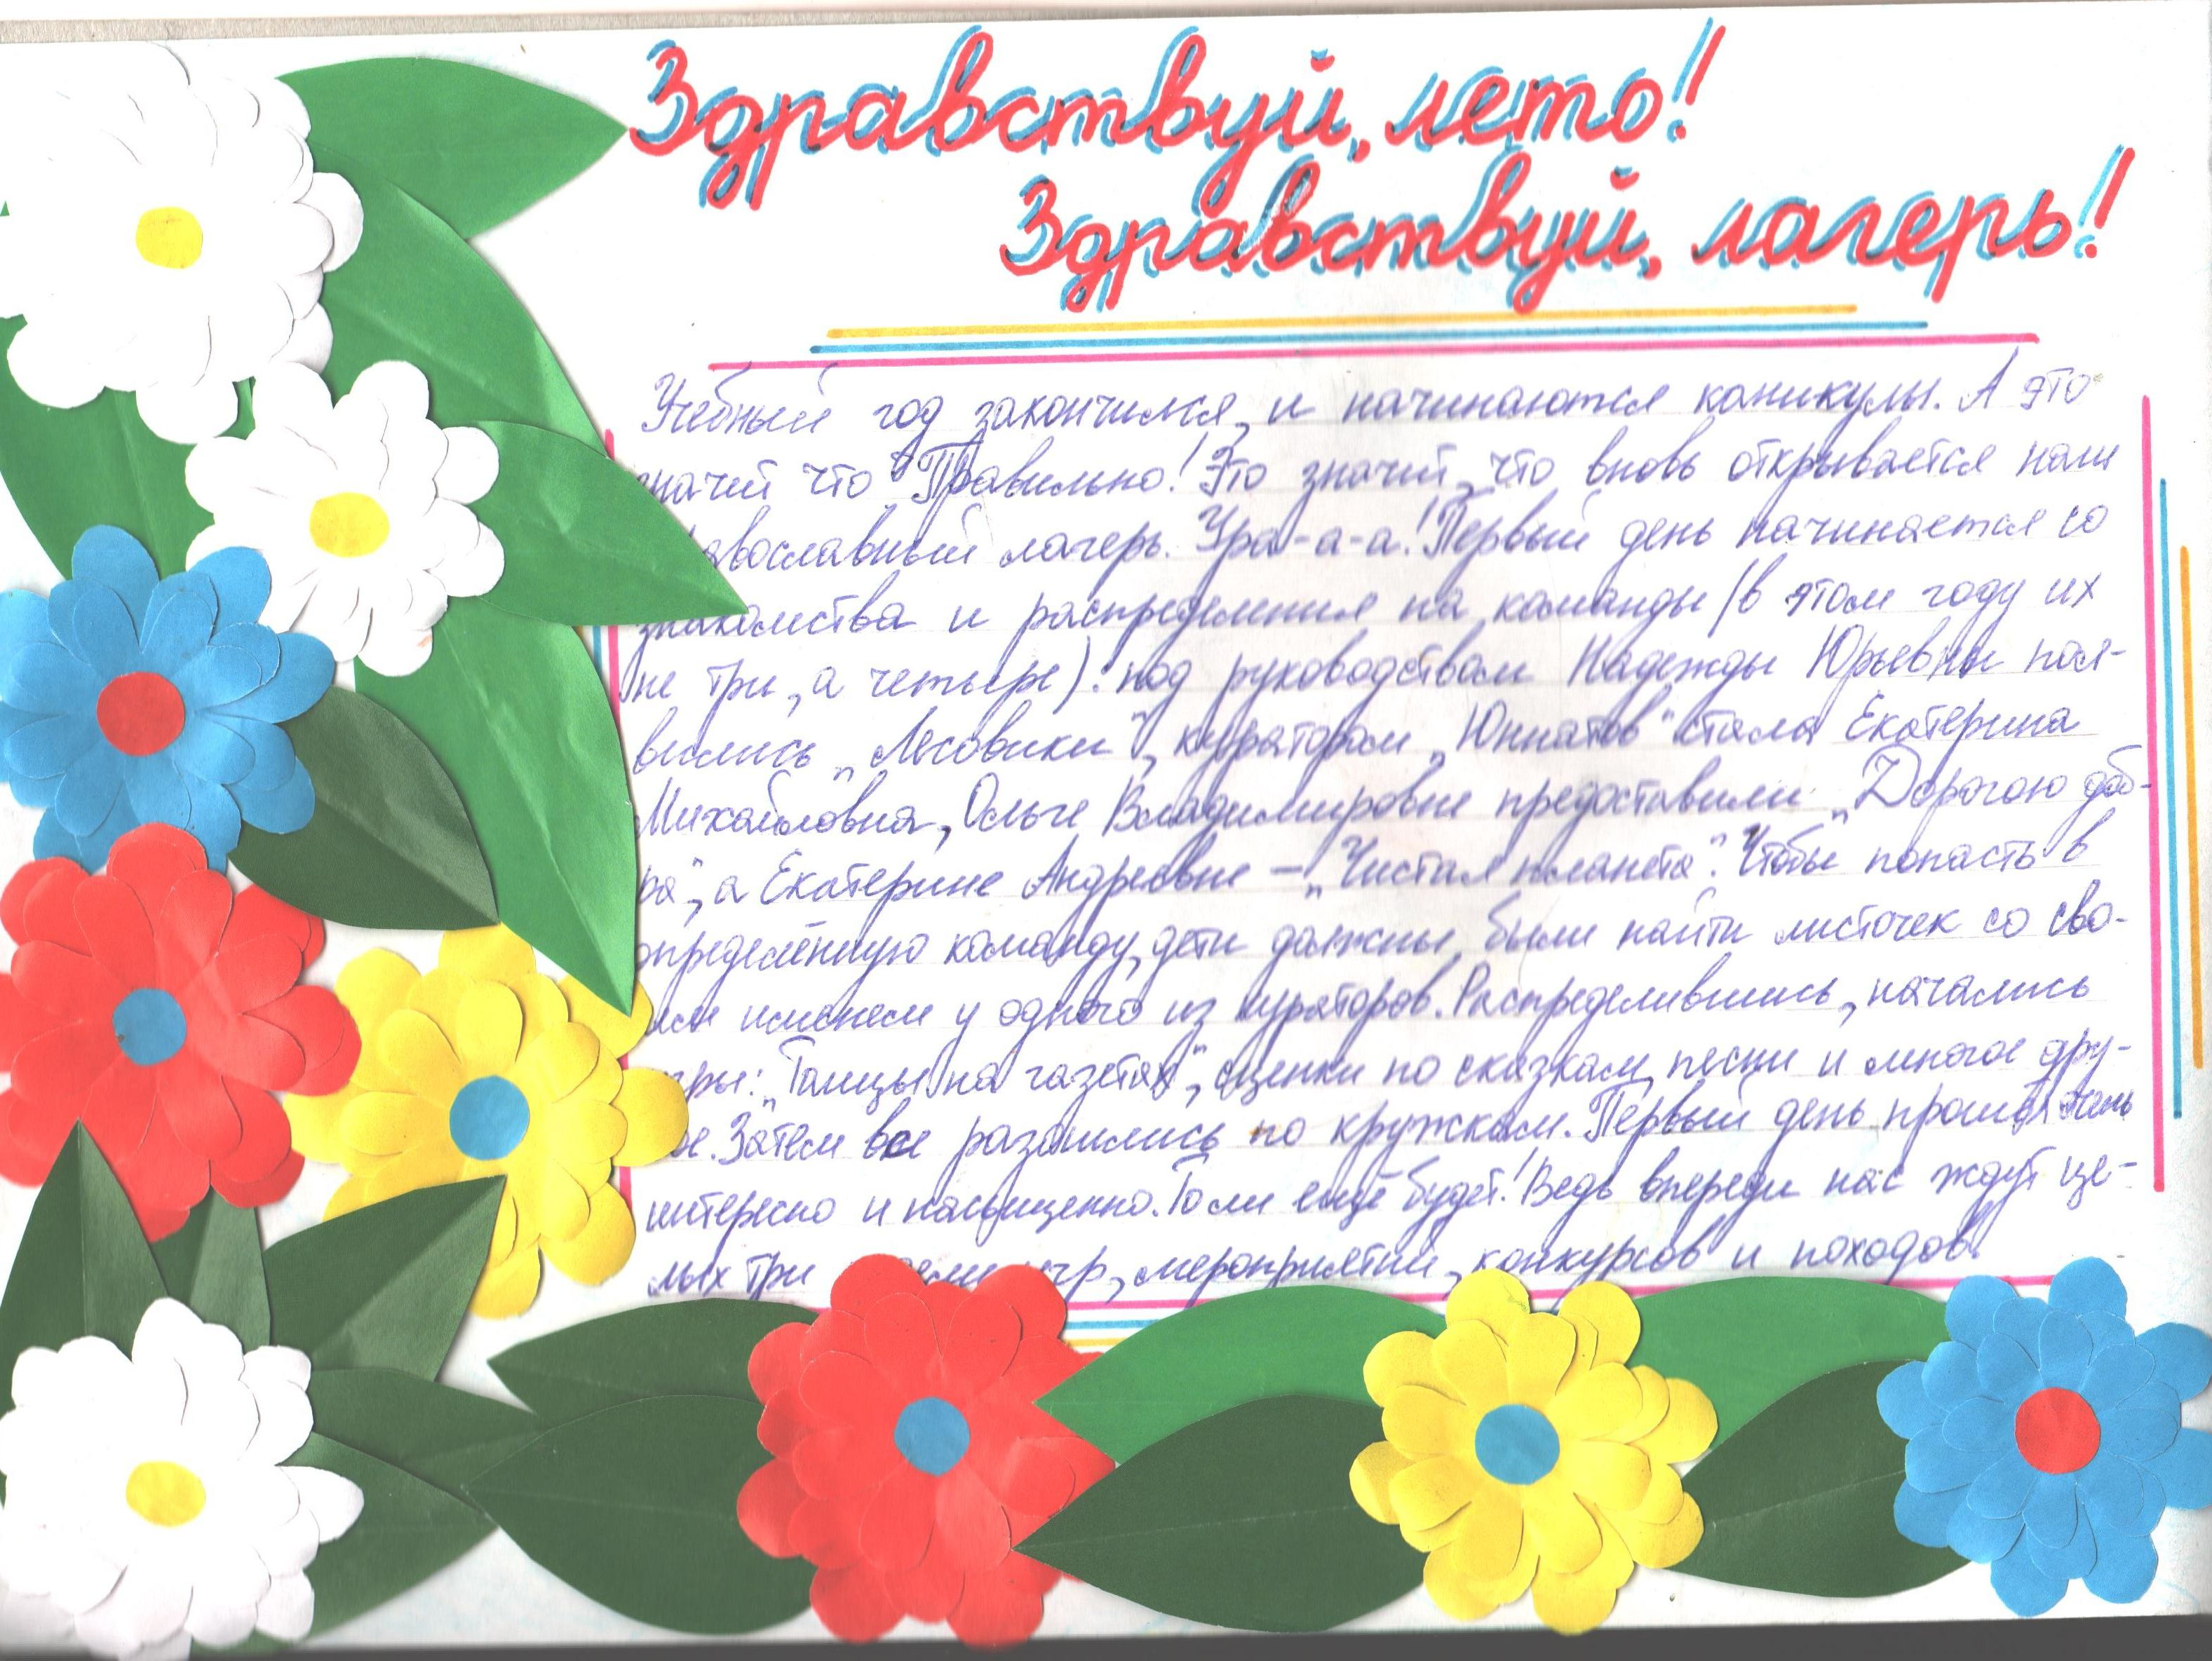 Здравствуй, лето!
Здравствуй, лагерь!
Учебный год закончился, и начинаются каникулы. А это
значит что? Правильно! Это значит, что вновь открывается наш
Православный лагерь. Ура-а-а! Первый день начинается со
знакомства и распределения на команды (в этом году их
не три, а четыре): под руководством Надежды Юрьевны поя-
вились „Лесовики", куратором „Юннатов" стала Екатерина
Михайловна, Ольге Владимировне предоставили „Дорогою доб-
ра", а Екатерине Андреевне – „Чистая планета". Чтобы попасть в
определённую команду, дети должны были найти листочек со сво-
им именем у одного из кураторов. Распределившись, начались
игры: „Танцы на газетах", сценки по сказкам, песни и многое дру-
гое. Затем все разошлись по кружкам. Первый день прошёл очень
интересно и насыщенно. То ли ещё будет! Ведь впереди нас ждут це-
лых три игр, мероприятий, конкурсов и походов.